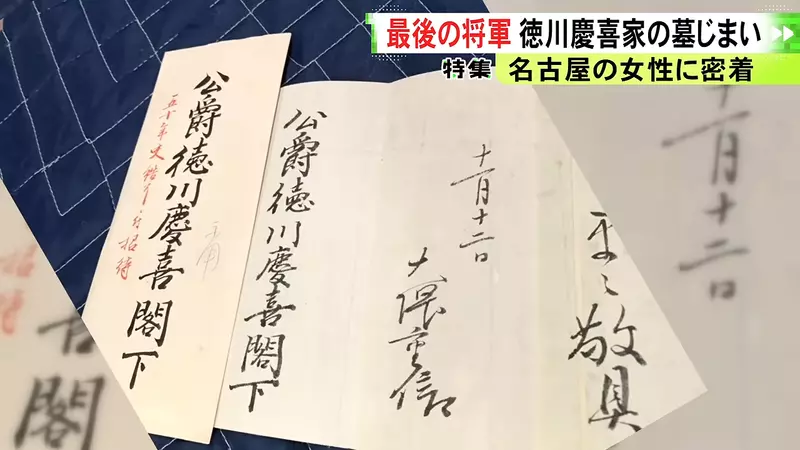 最後の将軍 徳川慶喜家の墓じまい
特集 名古屋の女性に密着
公爵徳川慶喜閣下
招待
公爵徳川慶喜閣下
十一月十二日
大隈重信
敬具
十一月十二日
招待
閣